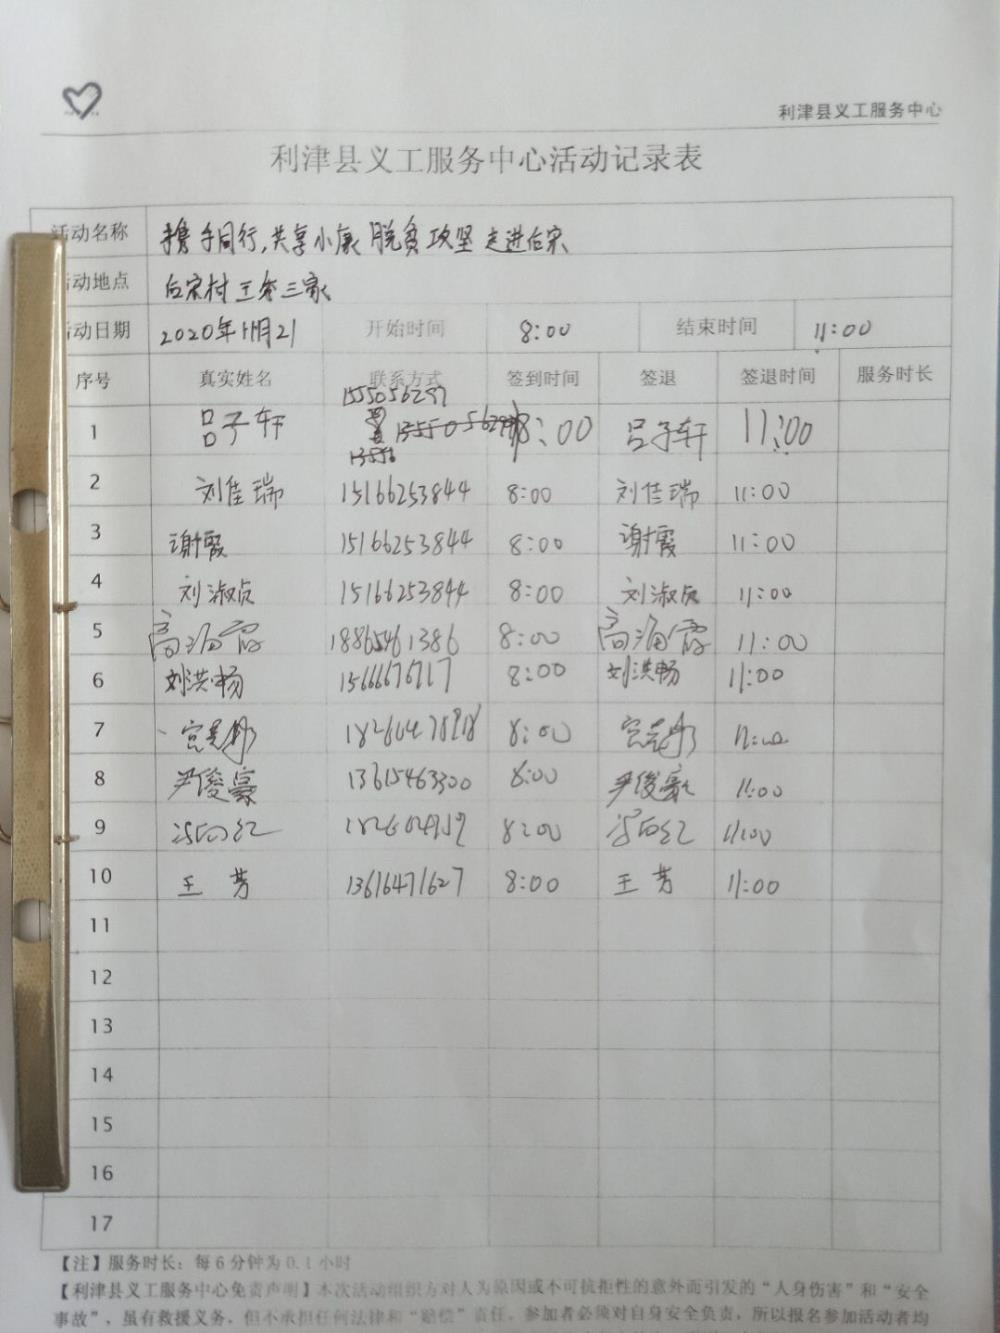 利津县义工服务中心
利津县义工服务中心活动记录表
活动名称 携手同行,共享小康 脱贫攻坚 走进后宋
活动地点 后宋村 三家
活动日期 2020年11月21 开始时间 8:00 结束时间 11:00
序号 真实姓名 联系方式 签到时间 签退 签退时间 服务时长
1 吕子轩 8:00 吕子轩 11:00
2 刘佳瑞 15166253844 8:00 刘佳瑞 11:00
3 谢霞 15166253844 8:00 谢霞 11:00
4 刘淑贞 15166253844 8:00 刘淑贞 11:00
5 高海霞 18865461386 8:00 高海霞 11:00
6 刘洪畅 15666676717 8:00 刘洪畅 11:00
7 8:00 11:00
8 尹俊豪 13615463300 8:00 尹俊豪 11:00
9 8:00 11:00
10 王芳 13616471627 8:00 王芳 11:00
11
12
13
14
15
16
17
【注】服务时长:每6分钟为0.1小时
【利津县义工服务中心免责声明】本次活动组织方对人为原因或不可抗拒性的意外而引发的“人身伤害”和“安全
事故”,虽有救援义务,但不承担任何法律和“赔偿”责任,参加者必须对自身安全负责,所以报名参加活动者均